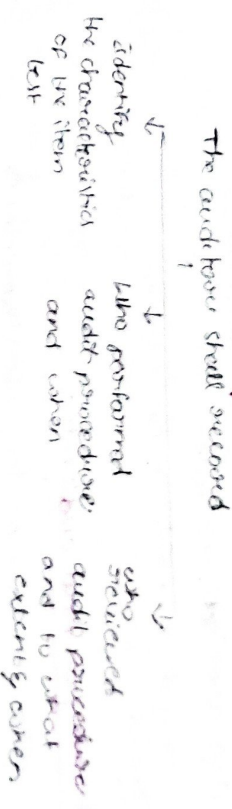 The auditor shall record
identify
the characteristics
of the item
test
who performed
audit procedure
and when
who
reviewed
audit procedure
and to what
extent & when